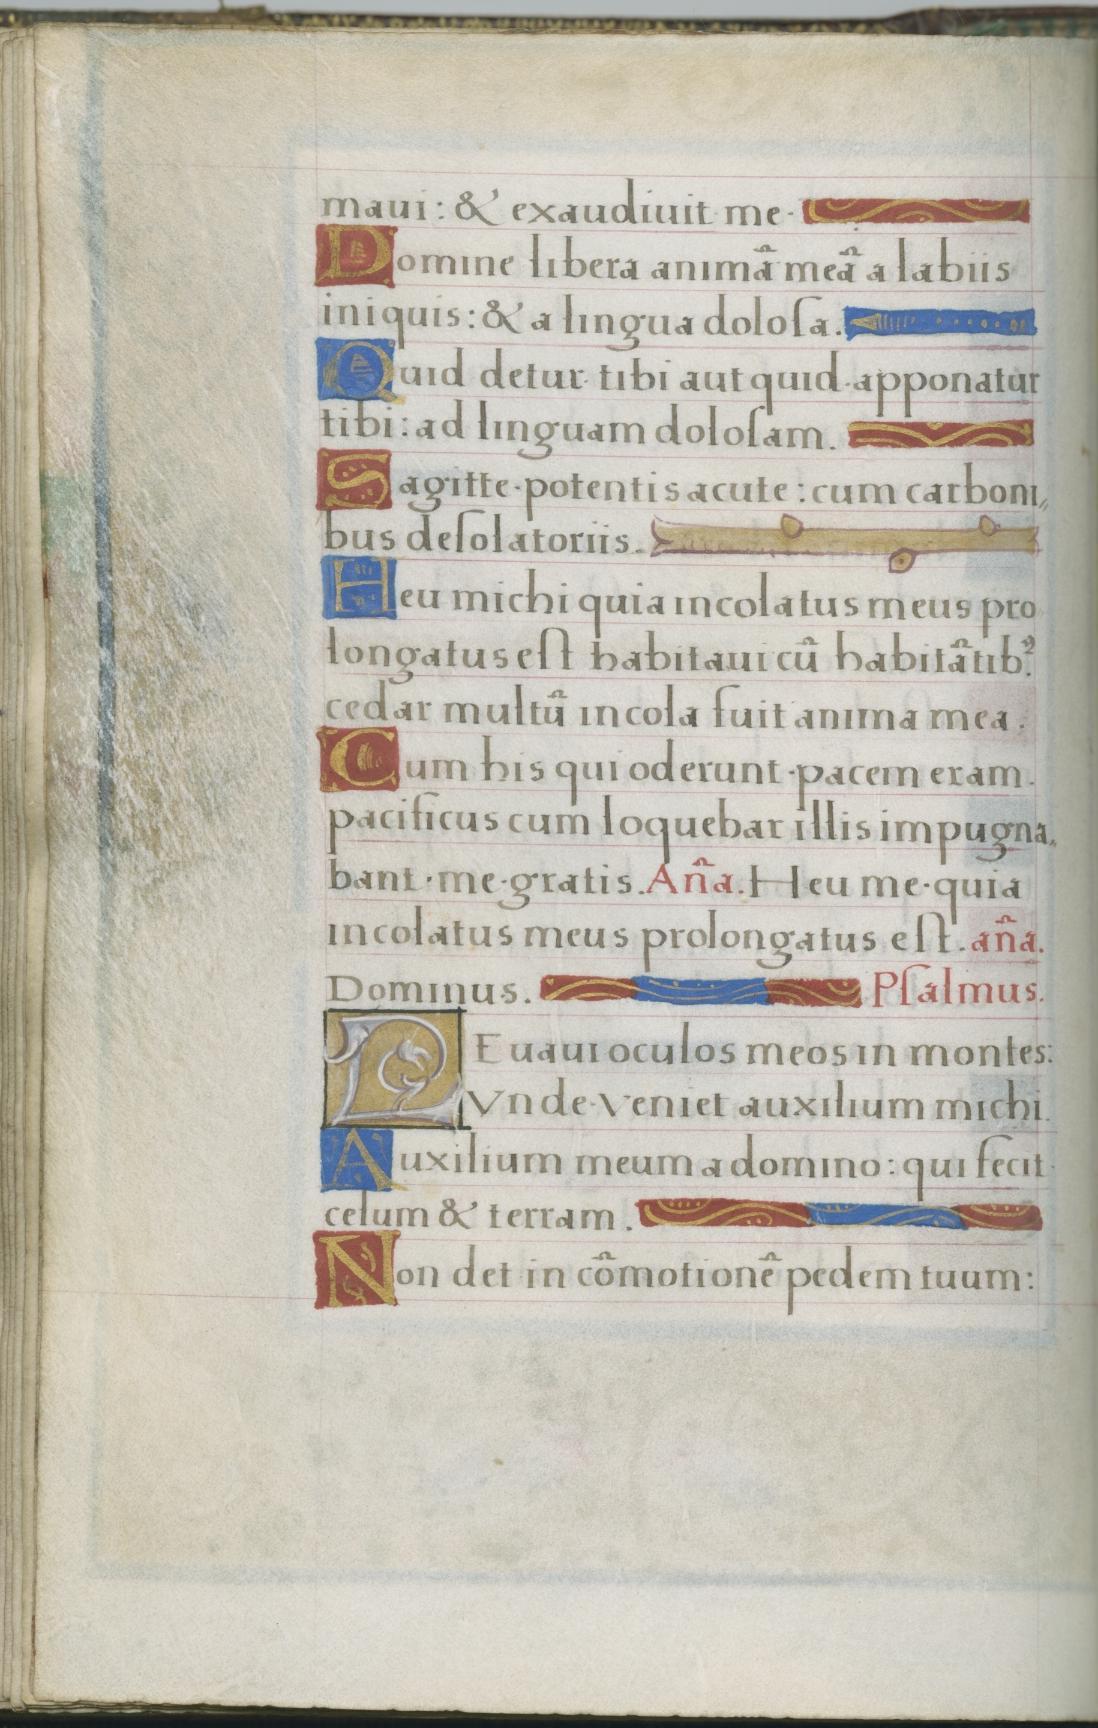 maui: & exaudiuit me.
Domine libera animã meã a labiis
iniquis: & a lingua doloſa.
Quid detur tibi aut quid apponatur
tibi: ad linguam doloſam.
Sagitte potentis acute: cum carboni„
bus deſolatoriis.
Heu michi quia incolatus meus pro
longatus eſt habitaui cũ habitãtib⁹:
cedar multũ incola fuit anima mea.
Cum his qui oderunt pacem eram
pacificus cum loquebar illis impugna„
bant me gratis. Añа. Heu me quia
incolatus meus prolongatus eſt. aña.
Dominus. Pſalmus.
LEuaui oculos meos in montes:
Vnde veniet auxilium michi.
Auxilium meum a domino: qui fecit
celum & terram.
Non det in cõmotionẽ pedem tuum: